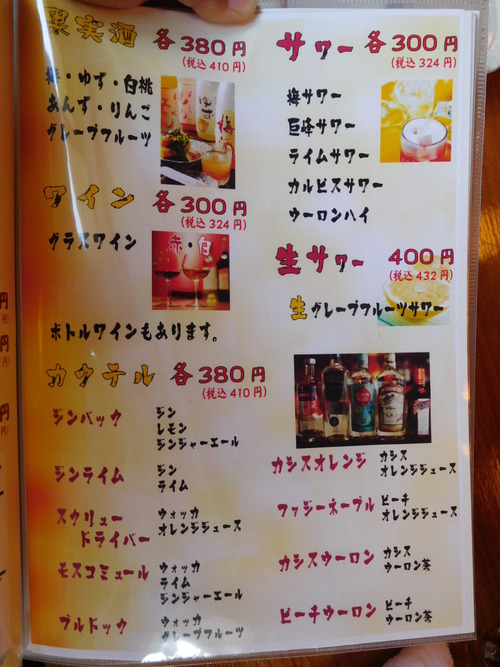 果実酒 各380円
(税込 410円)
梅・ゆず・白桃
あんず・りんご
グレープフルーツ
ワイン 各300円
(税込 324円)
グラスワイン
赤・白
ボトルワインもあります。
カクテル 各380円
(税込 410円)
ジンバック
ジン
レモン
ジンジャーエール
ジンライム
ジン
ライム
スクリュー
ドライバー
ウォッカ
オレンジジュース
モスコミュール
ウォッカ
ライム
ジンジャーエール
ブルドック
ウォッカ
グレープフルーツ
サワー 各300円
(税込 324円)
梅サワー
巨峰サワー
ライムサワー
カルピスサワー
ウーロンハイ
生サワー 400円
(税込 432円)
生グレープフルーツサワー
カシスオレンジ
カシス
オレンジジュース
ファジーネーブル
ピーチ
オレンジジュース
カシスウーロン
カシス
ウーロン茶
ピーチウーロン
ピーチ
ウーロン茶